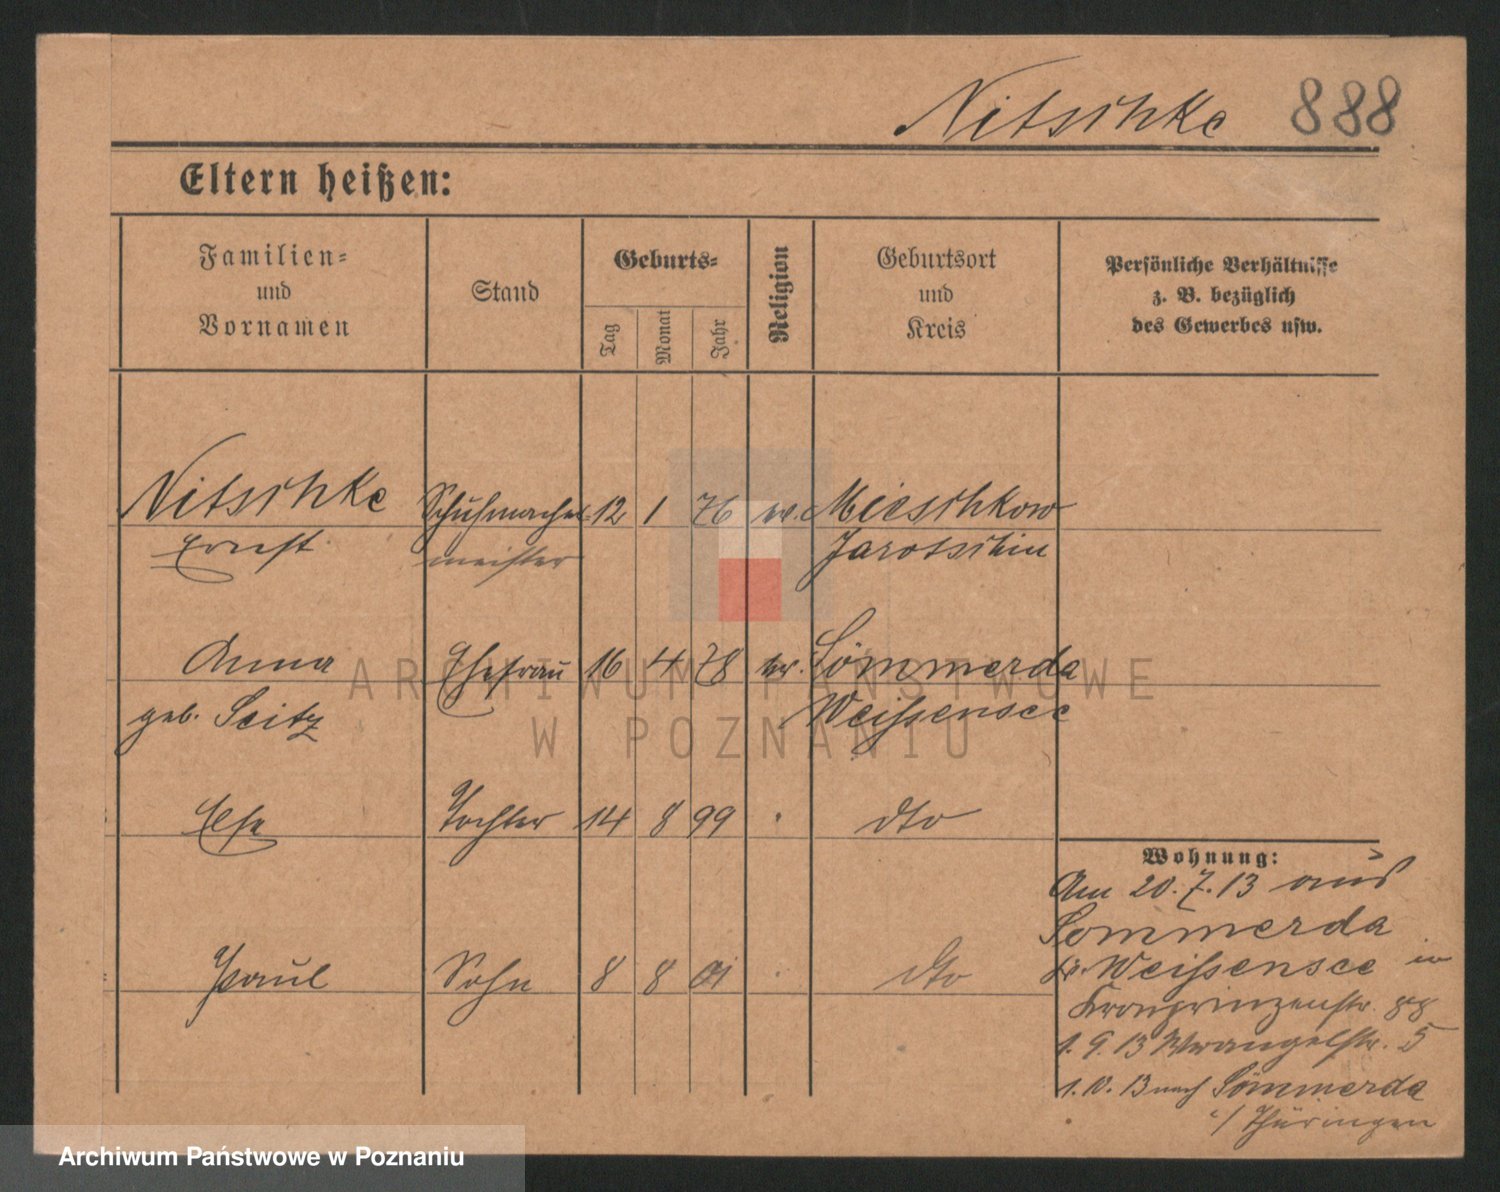 Nitschke 888
Eltern heißen:
Familien=
und
Vornamen
Stand
Geburts=
Tag
Monat
Jahr
Religion
Geburtsort
und
Kreis
Persönliche Verhältnisse
z. B. bezüglich
des Gewerbes usw.
Nitschke Schuhmacher= 12 1 76 ev. Mieschkow
Ernst meister Jarotschin
Anna Ehefrau 16 4 78 ev. Sömmerda
geb. Seitz Weißensee
Tochter 14 8 99 dto
Paul Sohn 8 8 01 dto
Wohnung:
Am 20.7.13 aus
Sömmerda
Kr. Weißensee in
Kronprinzenstr. 88
1.9.13 Wrangelstr. 5
1.10.13 nach Sömmerda
i/Thüringen
ARCHIWUM PAŃSTWOWE
W POZNANIU
Archiwum Państwowe w Poznaniu